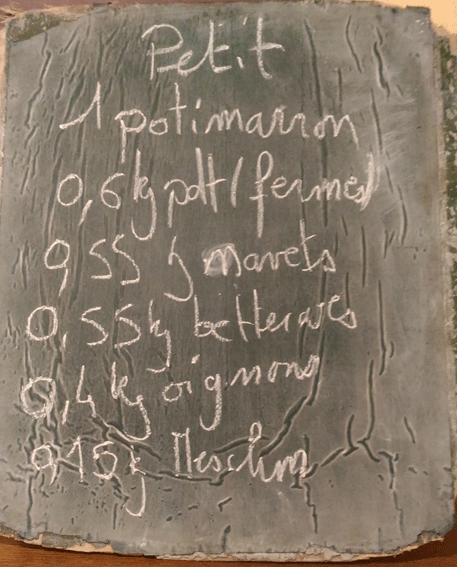 Petit
1 potimarron
0,6 kg pdt (fermes)
0,55 kg navets
0,55 kg betteraves
0,4 kg oignons
0,15 kg Mesclun